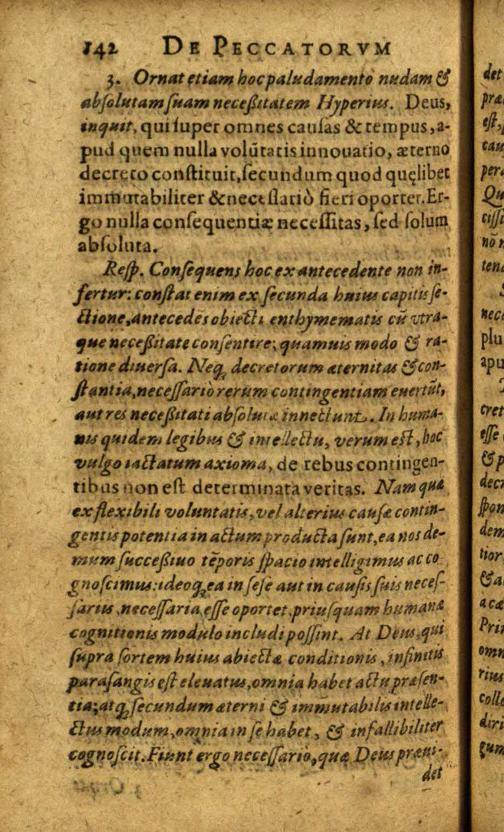 142 DE PECCATORVM
3. Ornat etiam hoc paludamento nudam &
absolutam suam neceßitatem Hyperius. Deus,
inquit, qui super omnes causas & tempus, a-
pud quem nulla volūtatis innouatio, æterno
decreto constituit, secundum quod quęlibet
immutabiliter & necessariò fieri oportet. Er-
go nulla consequentiæ necessitas, sed solum
absoluta.
Resp. Consequens hoc ex antecedente non in-
fertur: constat enim ex secunda huius capitis se-
ctione, antecedēs obiecti enthymematis cū vtra-
que neceßitate consentire; quamuis modo & ra-
tione diuersa. Neq; decretorum æternitas & con-
stantia, necessario rerum contingentiam euertūt,
aut res neceßitati absolutæ innectunt. In huma-
nis quidem legibus & intellectu, verum est, hoc
vulgo iactatum axioma, de rebus contingen-
tibus non est determinata veritas. Nam quæ
ex flexibili voluntatis, vel alterius causæ contin-
gentis potentia in actum producta sunt, ea nos de-
mum succeßiuo tēporis spacio intelligimus ac co
gnoscimus: ideoq; ea in sese aut in causis suis neces-
sariis, necessaria esse oportet, priusquam humanæ
cognitionis modulo includi possint. At Deus, qui
supra sortem huius abiectæ conditionis, infinitis
parasangis est eleuatus, omnia habet actu præsen-
tia; atq; secundum æterni & immutabilis intelle-
ctus modum, omnia in se habet, & infallibiliter
cognoscit. Fiunt ergo necessario, quæ Deus præui-
det